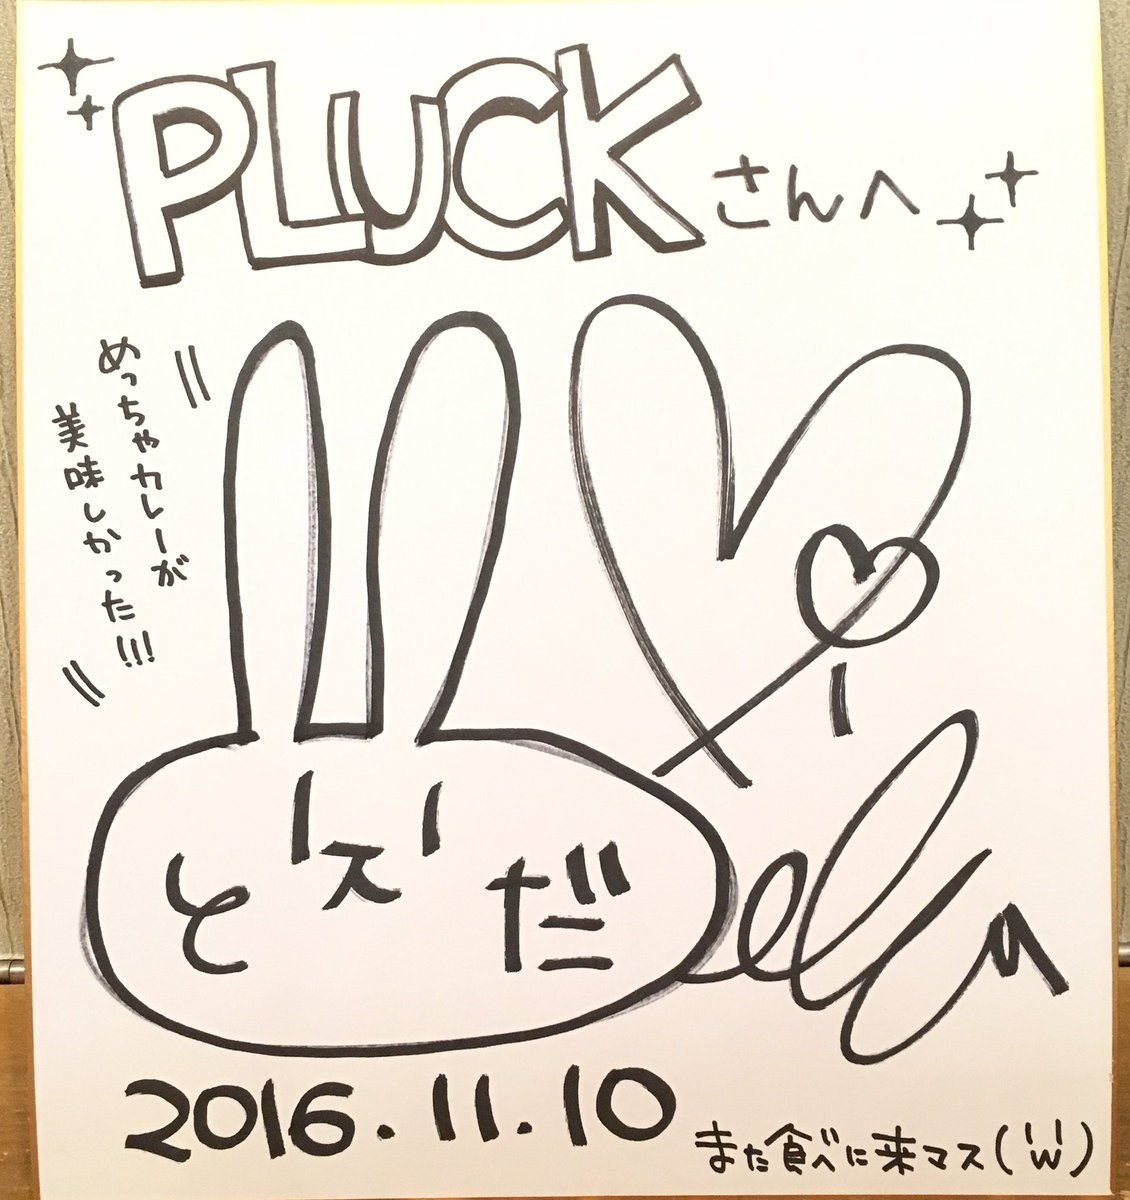 PLUCKさんへ
めっちゃカレーが
美味しかった!!!
とだ
2016.11.10
また食べに来マス(¨w)